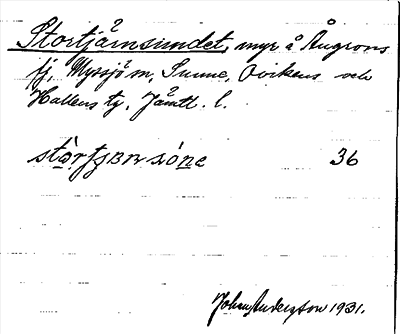 Stortjärnsundet, myr å Ångrons
fj, Myssjö m, Sunne, Ovikens och
Hallens tg, Jämtl. l.
36
Johan Andersson 1931.